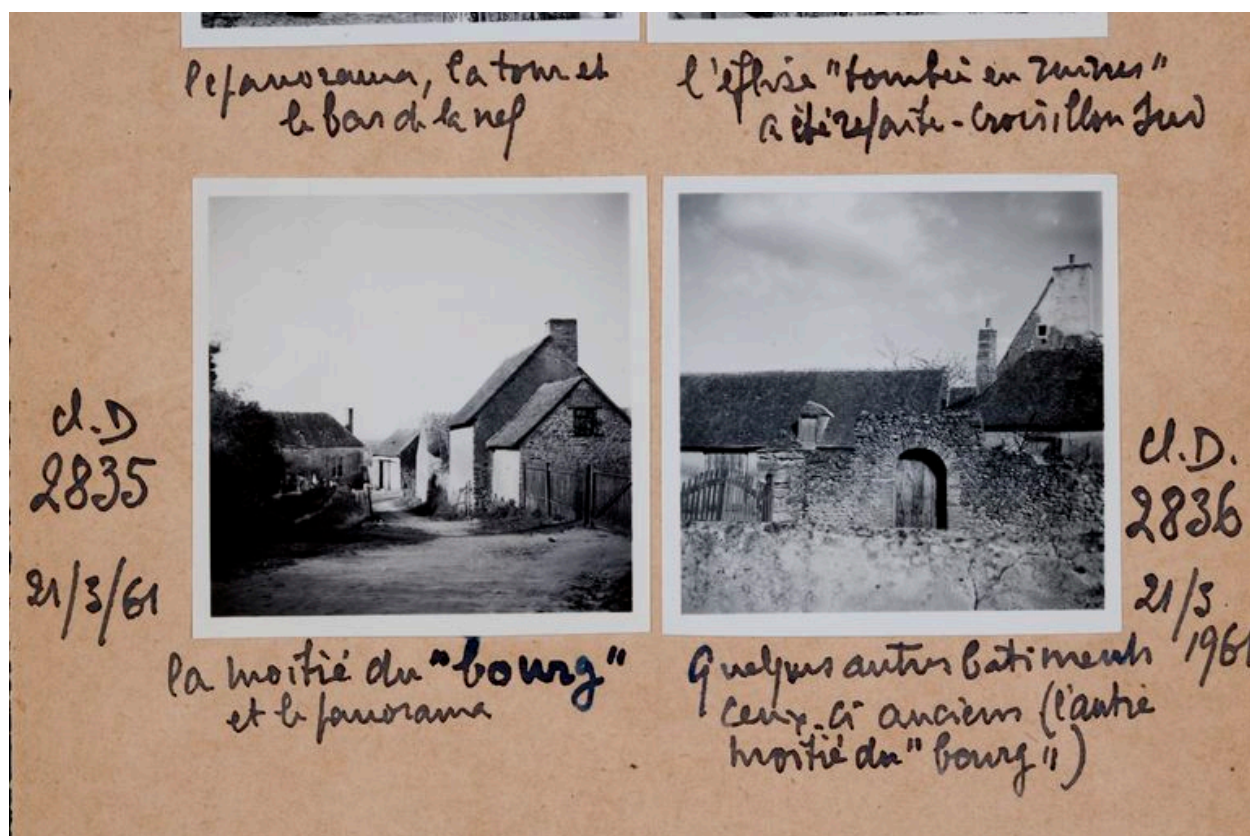 le panorama, la tour et
le bas de la nef
l'église "tombée en ruines"
a été refaite - Croisillon Sud
cl. D
2835
21/3/61
la moitié du "bourg"
et le panorama
Cl. D.
2836
21/3
1961
Quelques autres bâtiments
ceux-ci anciens (l'autre
moitié du "bourg")